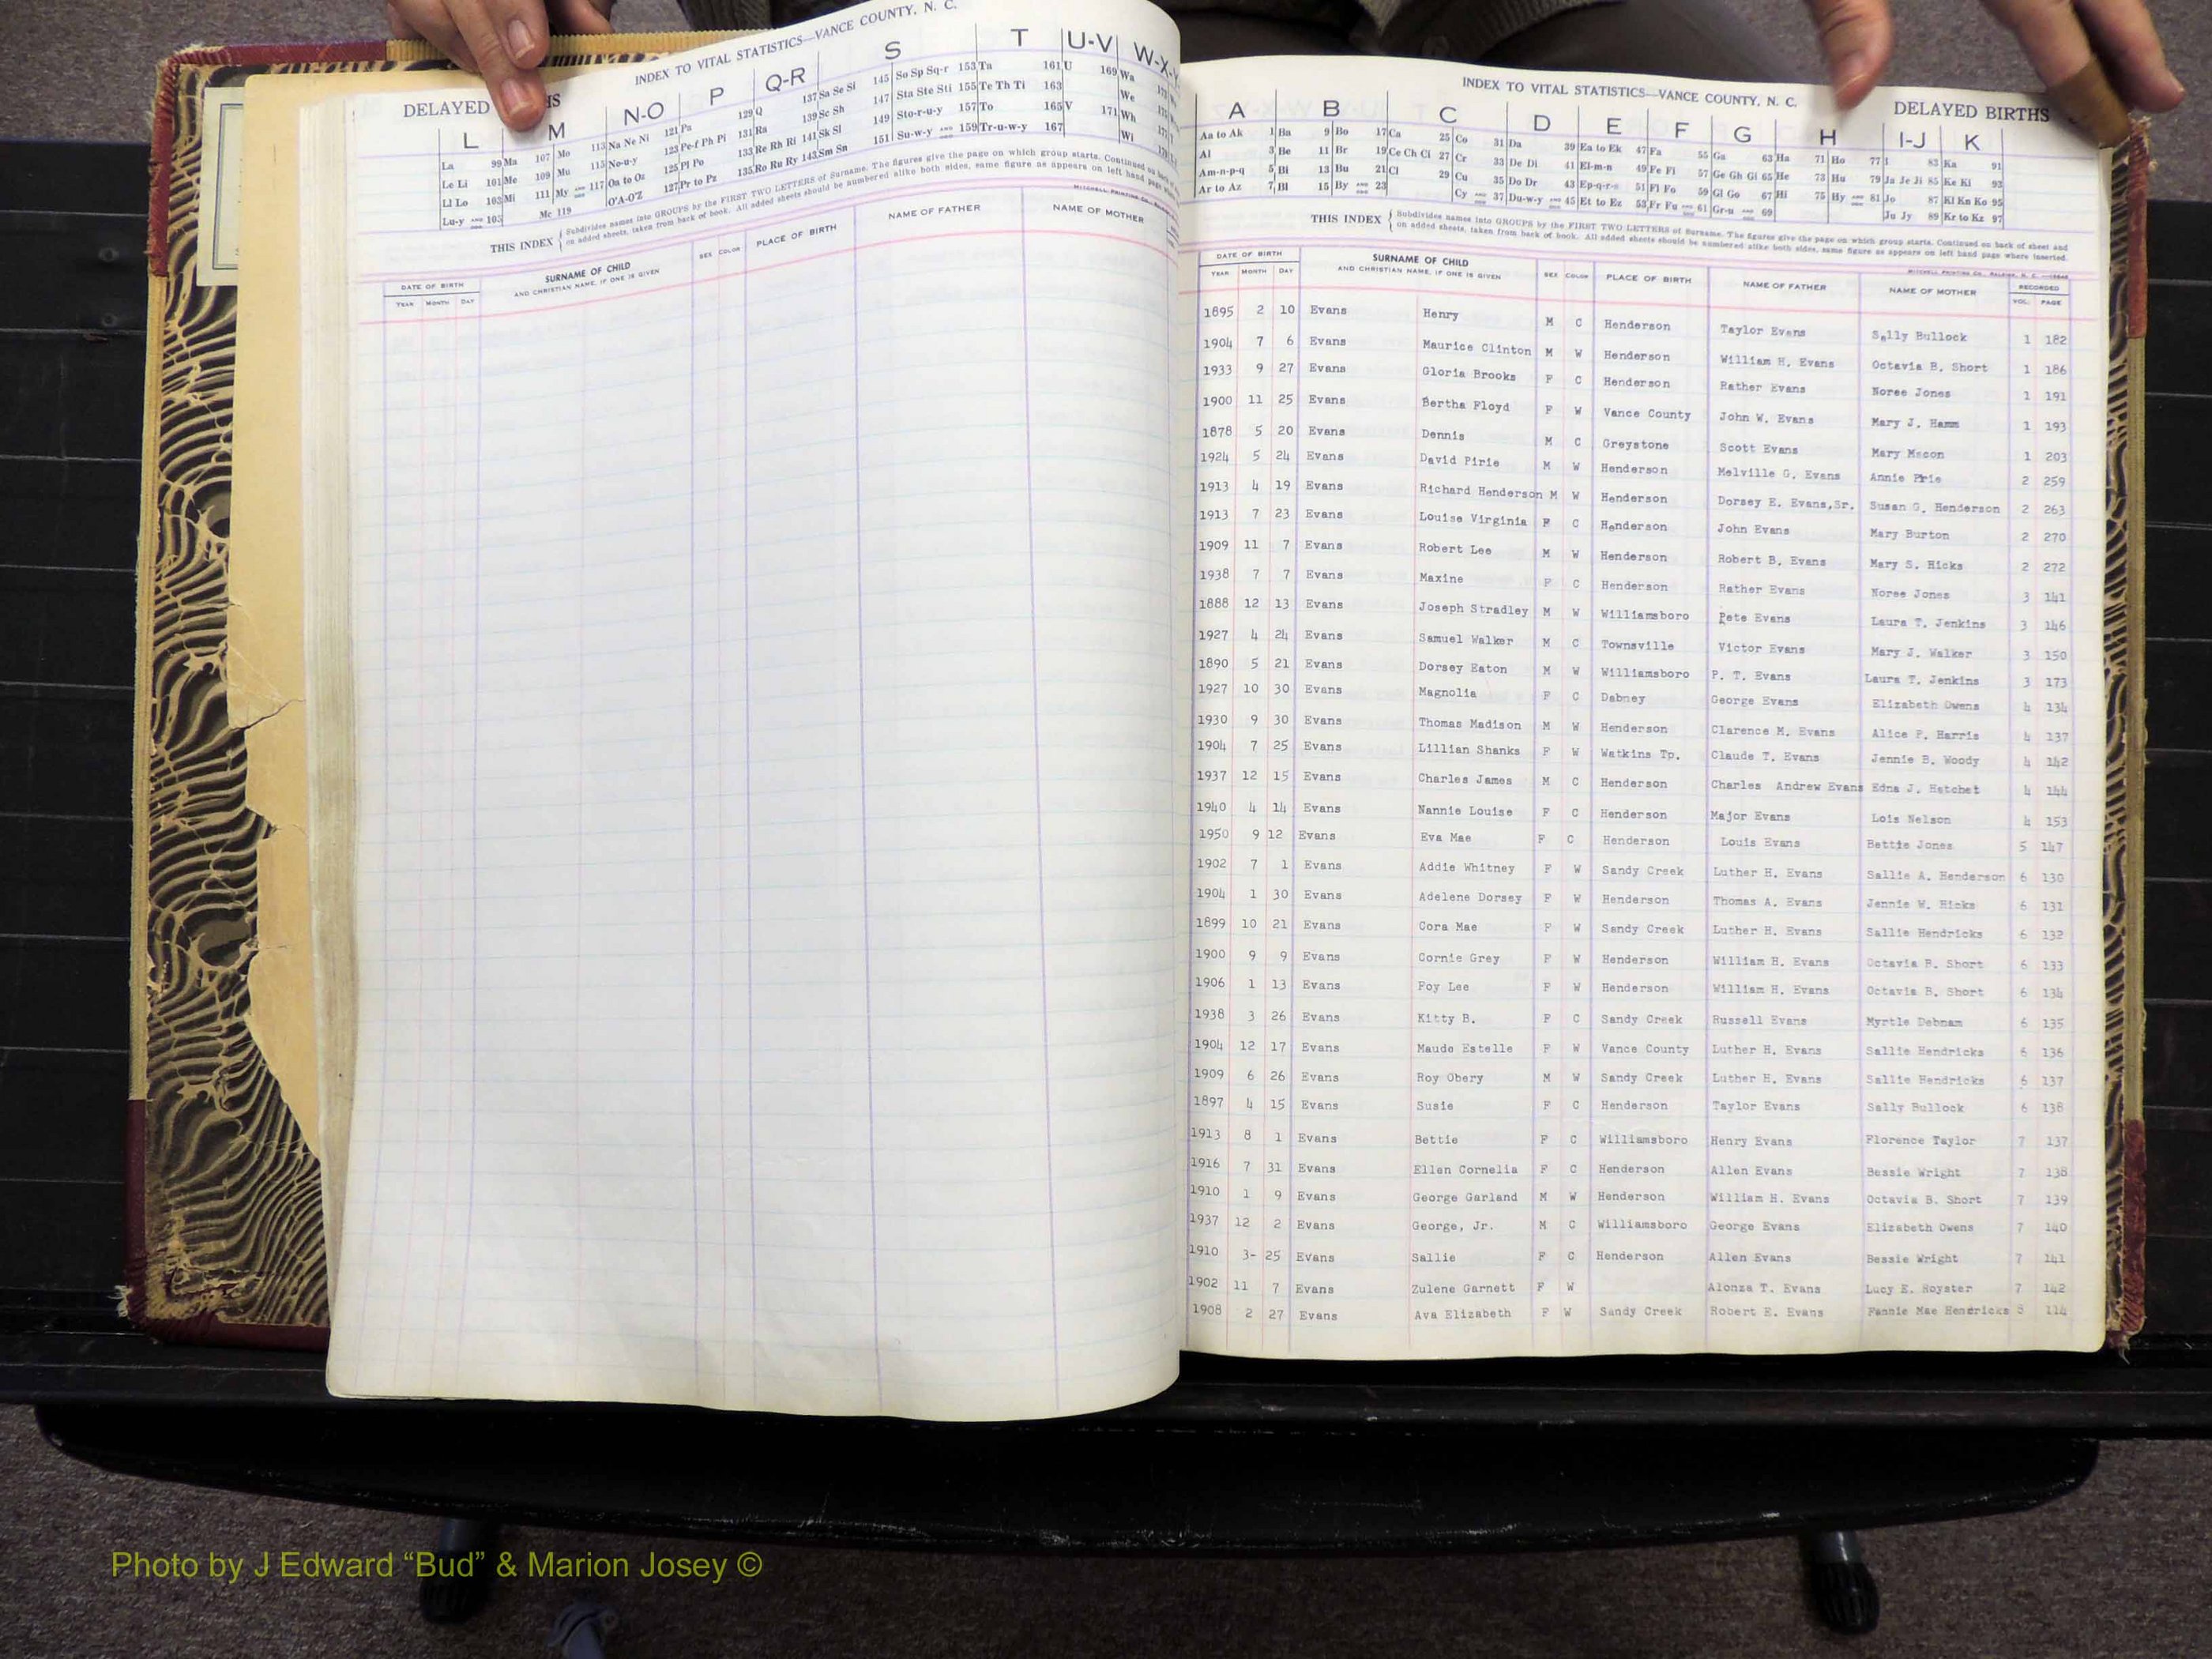 INDEX TO VITAL STATISTICS—VANCE COUNTY, N. C.
DELAYED HS
L M N-O P Q-R S T U-V W-X-Y
La 99 Ma 107 Mo 113 Na Ne Ni 121 Pa 129 Q 137 Sa Se Si 145 So Sp Sq-r 153 Ta 161 U 169 Wa
Le Li 101 Me 109 Mu 115 No-u-y 123 Pe-f Ph Pi 131 Ra 139 Sc Sh 147 Sta Ste Sti 155 Te Th Ti 163 We
Ll Lo 103 Mi 111 My AND 117 Oa to Oz 125 Pl Po 133 Re Rh Ri 141 Sk Sl 149 Sto-r-u-y 157 To 165 V 171 Wh
Lu-y AND 105 Mc 119 O'A-O'Z 127 Pr to Pz 135 Ro Ru Ry 143 Sm Sn 151 Su-w-y AND 159 Tr-u-w-y 167 Wi
THIS INDEX { Subdivides names into GROUPS by the FIRST TWO LETTERS of Surname. The figures give the page on which group starts. Continued on back of
on added sheets, taken from back of book. All added sheets should be numbered alike both sides, same figure as appears on left hand page
DATE OF BIRTH SURNAME OF CHILD SEX COLOR PLACE OF BIRTH NAME OF FATHER NAME OF MOTHER
YEAR MONTH DAY AND CHRISTIAN NAME, IF ONE IS GIVEN
INDEX TO VITAL STATISTICS—VANCE COUNTY, N. C. DELAYED BIRTHS
A B C D E F G H I-J K
Aa to Ak 1 Ba 9 Bo 17 Ca 25 Co 31 Da 39 Ea to Ek 47 Fa 55 Ga 63 Ha 71 Ho 77 I 83 Ka 91
Al 3 Be 11 Br 19 Ce Ch Ci 27 Cr 33 De Di 41 El-m-n 49 Fe Fi 57 Ge Gh Gi 65 He 73 Hu 79 Ja Je Ji 85 Ke Ki 93
Am-n-p-q 5 Bi 13 Bu 21 Cl 29 Cu 35 Do Dr 43 Ep-q-r-s 51 Fl Fo 59 Gl Go 67 Hi 75 Hy AND 81 Jo 87 Kl Kn Ko 95
Ar to Az 7 Bl 15 By AND 23 Cy AND 37 Du-w-y AND 45 Et to Ez 53 Fr Fu AND 61 Gr-u AND 69 Ju Jy 89 Kr to Kz 97
THIS INDEX { Subdivides names into GROUPS by the FIRST TWO LETTERS of Surname. The figures give the page on which group starts. Continued on back of sheet and
on added sheets, taken from back of book. All added sheets should be numbered alike both sides, same figure as appears on left hand page where inserted.
MITCHELL PRINTING CO., RALEIGH, N. C.
DATE OF BIRTH SURNAME OF CHILD SEX COLOR PLACE OF BIRTH NAME OF FATHER NAME OF MOTHER RECORDED
YEAR MONTH DAY AND CHRISTIAN NAME, IF ONE IS GIVEN VOL. PAGE
1895 2 10 Evans Henry M C Henderson Taylor Evans Sally Bullock 1 182
1904 7 6 Evans Maurice Clinton M W Henderson William H. Evans Octavia B. Short 1 186
1933 9 27 Evans Gloria Brooks F C Henderson Rather Evans Noree Jones 1 191
1900 11 25 Evans Bertha Floyd F W Vance County John W. Evans Mary J. Hamm 1 193
1878 5 20 Evans Dennis M C Greystone Scott Evans Mary Macon 1 203
1924 5 24 Evans David Pirie M W Henderson Melville G. Evans Annie Prie 2 259
1913 4 19 Evans Richard Henderson M W Henderson Dorsey E. Evans,Sr. Susan G. Henderson 2 263
1913 7 23 Evans Louise Virginia F C Henderson John Evans Mary Burton 2 270
1909 11 7 Evans Robert Lee M W Henderson Robert B. Evans Mary S. Hicks 2 272
1938 7 7 Evans Maxine F C Henderson Rather Evans Noree Jones 3 141
1888 12 13 Evans Joseph Stradley M W Williamsboro Pete Evans Laura T. Jenkins 3 146
1927 4 24 Evans Samuel Walker M C Townsville Victor Evans Mary J. Walker 3 150
1890 5 21 Evans Dorsey Eaton M W Williamsboro P. T. Evans Laura T. Jenkins 3 173
1927 10 30 Evans Magnolia F C Dabney George Evans Elizabeth Owens 4 134
1930 9 30 Evans Thomas Madison M W Henderson Clarence M. Evans Alice P. Harris 4 137
1904 7 25 Evans Lillian Shanks F W Watkins Tp. Claude T. Evans Jennie B. Woody 4 142
1937 12 15 Evans Charles James M C Henderson Charles Andrew Evans Edna J. Hatchet 4 144
1940 4 14 Evans Nannie Louise F C Henderson Major Evans Lois Nelson 4 153
1950 9 12 Evans Eva Mae F C Henderson Louis Evans Bettie Jones 5 147
1902 7 1 Evans Addie Whitney F W Sandy Creek Luther H. Evans Sallie A. Henderson 6 130
1904 1 30 Evans Adelene Dorsey F W Henderson Thomas A. Evans Jennie W. Hicks 6 131
1899 10 21 Evans Cora Mae F W Sandy Creek Luther H. Evans Sallie Hendricks 6 132
1900 9 9 Evans Cornie Grey F W Henderson William H. Evans Octavia B. Short 6 133
1906 1 13 Evans Foy Lee F W Henderson William H. Evans Octavia B. Short 6 134
1938 3 26 Evans Kitty B. F C Sandy Creek Russell Evans Myrtle Debnam 6 135
1904 12 17 Evans Maude Estelle F W Vance County Luther H. Evans Sallie Hendricks 6 136
1909 6 26 Evans Roy Obery M W Sandy Creek Luther H. Evans Sallie Hendricks 6 137
1897 4 15 Evans Susie F C Henderson Taylor Evans Sally Bullock 6 138
1913 8 1 Evans Bettie F C Williamsboro Henry Evans Florence Taylor 7 137
1916 7 31 Evans Ellen Cornelia F C Henderson Allen Evans Bessie Wright 7 138
1910 1 9 Evans George Garland M W Henderson William H. Evans Octavia B. Short 7 139
1937 12 2 Evans George, Jr. M C Williamsboro George Evans Elizabeth Owens 7 140
1910 3- 25 Evans Sallie F C Henderson Allen Evans Bessie Wright 7 141
1902 11 7 Evans Zulene Garnett F W Alonza T. Evans Lucy E. Royster 7 142
1908 2 27 Evans Ava Elizabeth F W Sandy Creek Robert E. Evans Fannie Mae Hendricks 8 114
Photo by J Edward “Bud” & Marion Josey ©